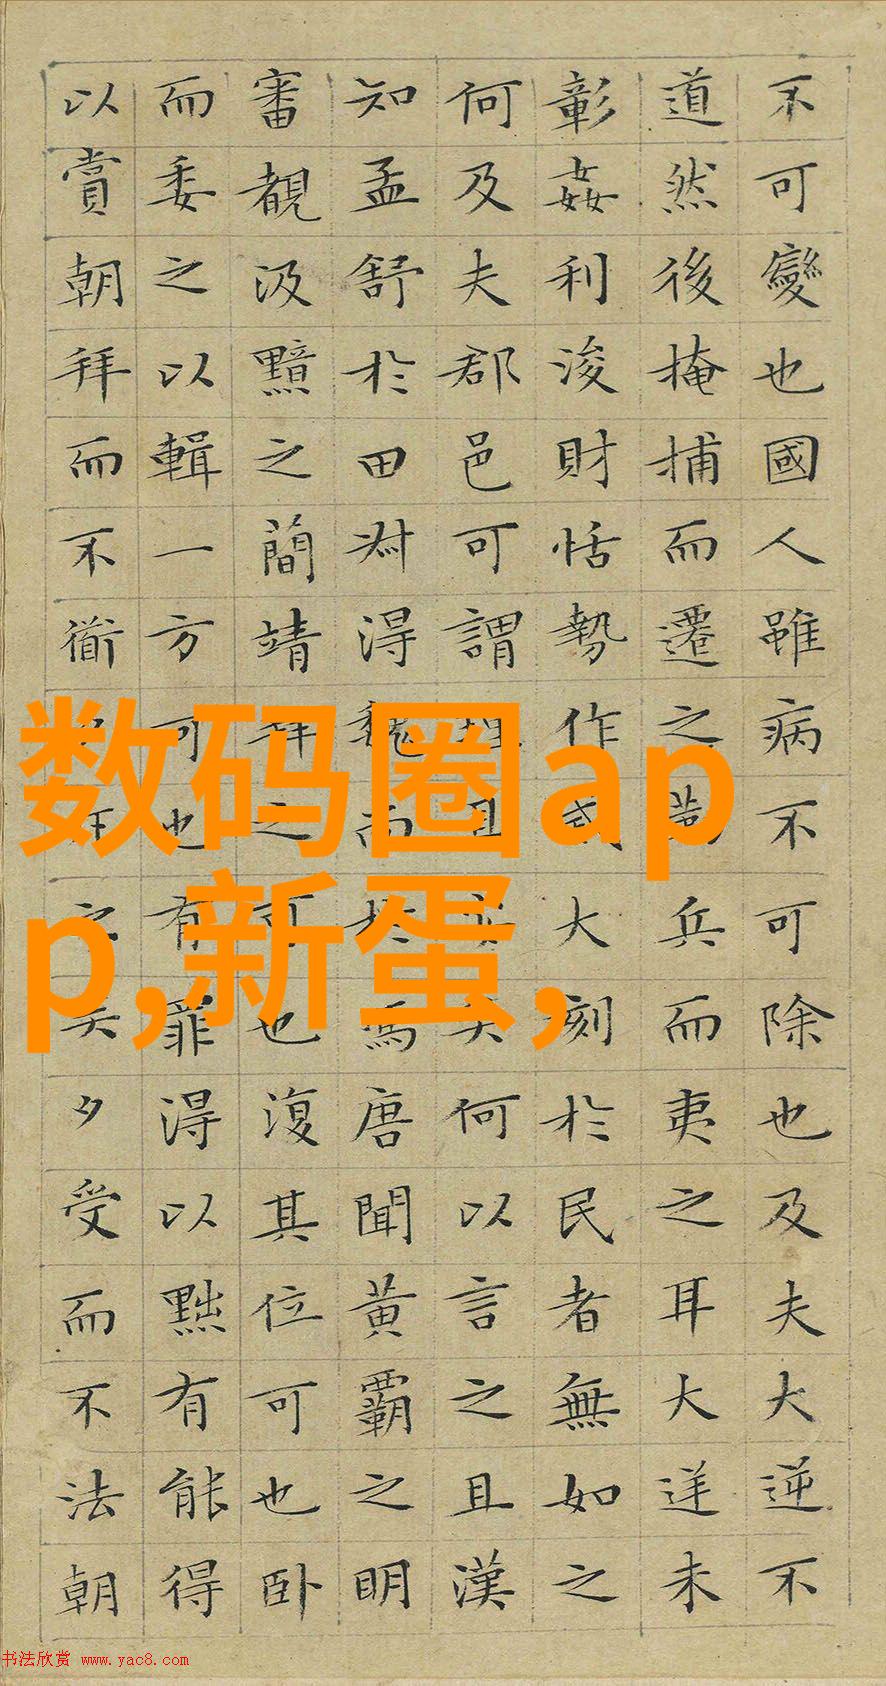 不可變也國人雖病不可除也及夫大逆不
道然後掩捕而遷之勒兵而夷之耳大逆未
彰姦利浚財恬勢作威大刻於民者無如之
何及夫郡邑可謂理且安矣何以言之且漢
知孟舒於田叔得魏尚於馮唐聞黃霸之明
審覩汲黯之簡靖拜之可也復其位可也卧
而委之以輯一方可也有罪得以黜有能得
以賞朝拜而不衟夕斥之矣夕受而不法朝
数码圈ap
p,新蛋,
书法欣赏 www.yac8.com